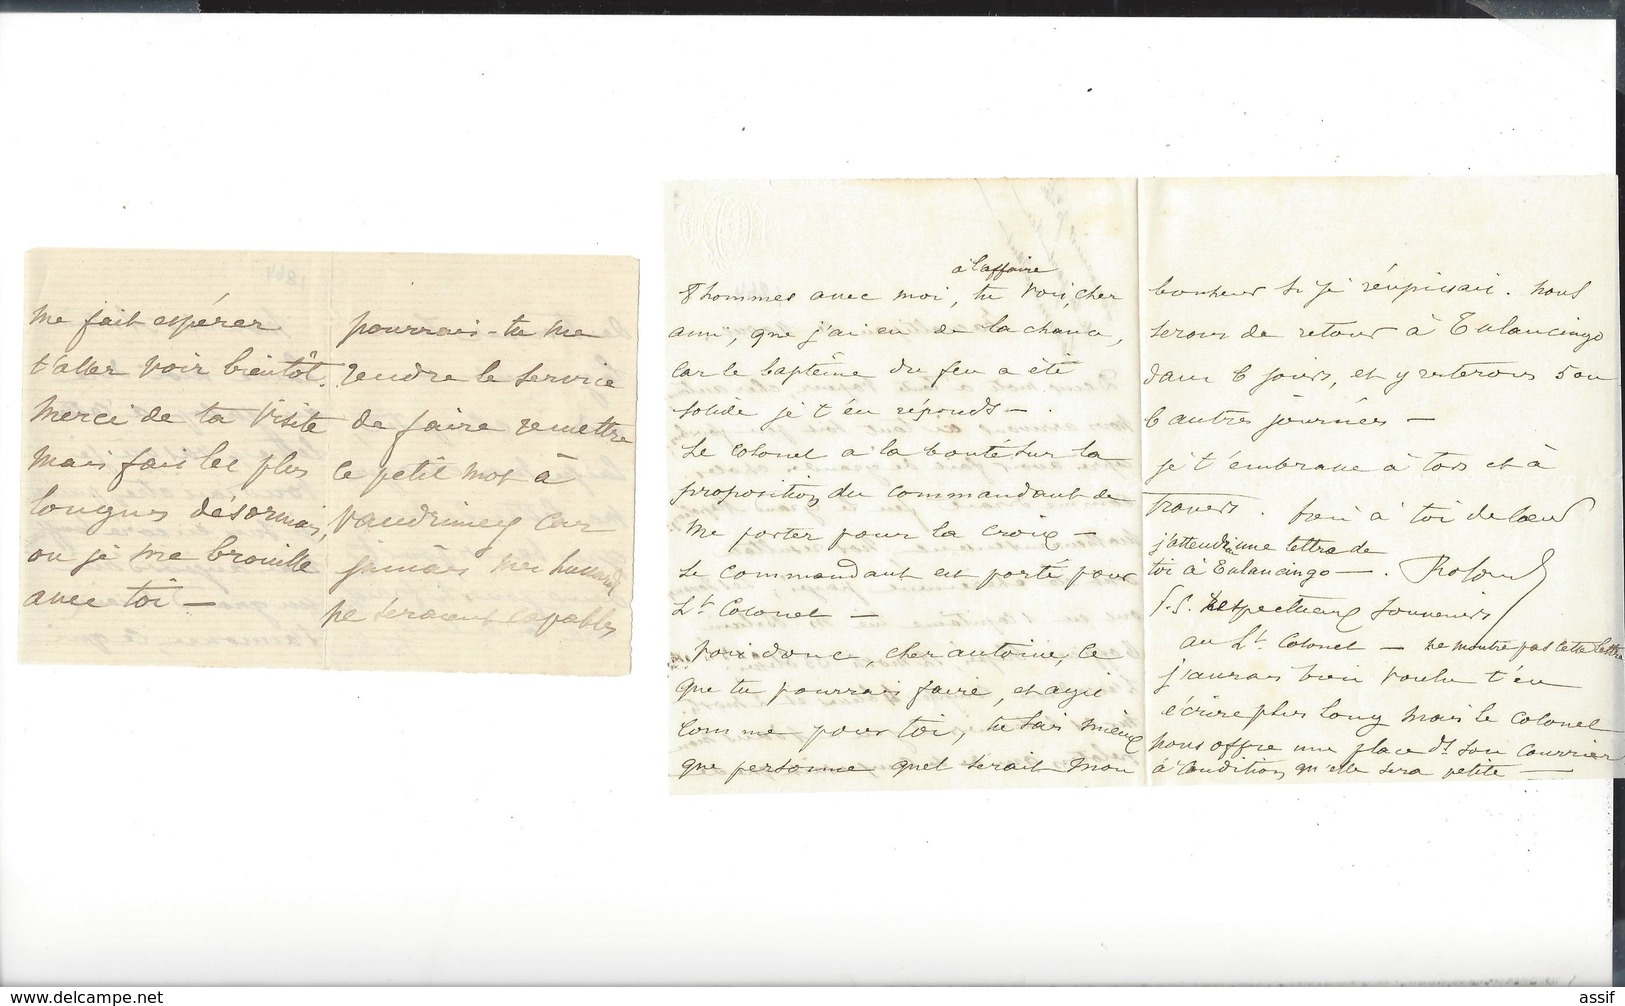 me fait espérer
t'aller voir bientôt.
Merci de ta visite
mais fais les plus
longues désormais,
ou je me brouille
avec toi —
pourrais-tu me
rendre le service
de faire remettre
ce petit mot à
Vaudrimey car
jamais mes hussards
ne seraient capables
à l'affaire
8 hommes avec moi, tu vois, cher
ami, que j'ai eu de la chance,
car le baptême du feu a été
solide je t'en réponds —.
Le Colonel a la bonté sur la
proposition du commandant de
me porter pour la croix —
Le commandant est porté pour
Lt Colonel —
Vois donc, cher antoine, ce
que tu pourrais faire, et agis
comme pour toi, tu sais mieux
que personne quel serait mon
bonheur si je réussissais. nous
serons de retour à Tulancingo
dans 6 jours, et y resterons 5 ou
6 autres journées —
je t'embrasse à tors et à
travers. bien à toi de cœur
j'attends une lettre de
toi à Tulancingo —.
P.S. Respectueux souvenirs
au Lt. Colonel — ne montre pas cette lettre
j'aurais bien voulu t'en
écrire plus long mais le colonel
nous offre une place ds son courrier
à condition qu'elle sera petite —
1864
© for www.delcampe.net
assif